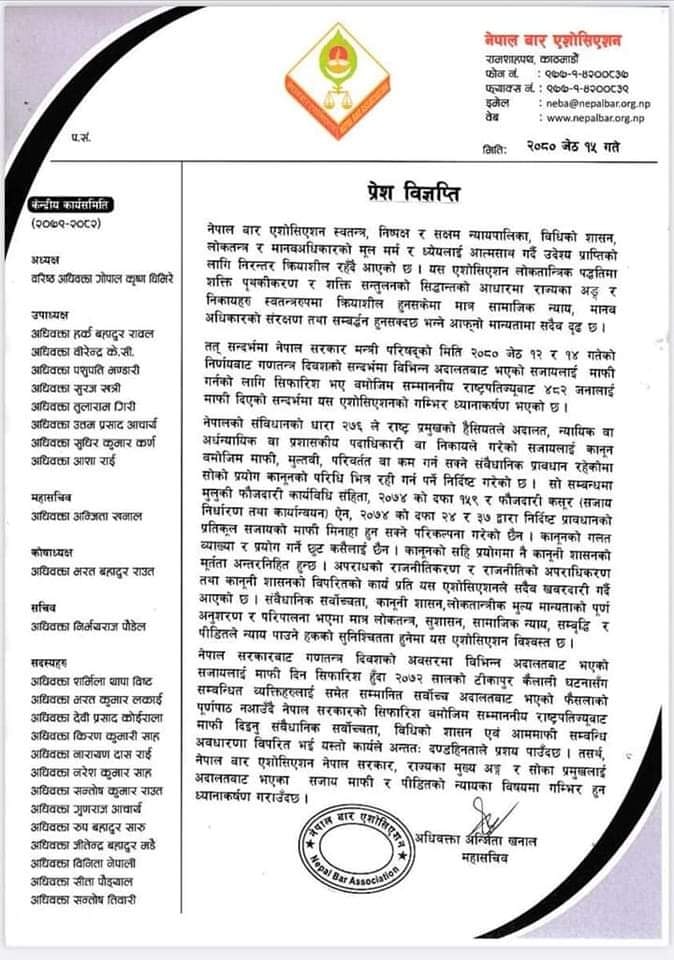 नेपाल बार एशोसिएशन
रामशाहपथ, काठमाडौं
फोन नं. : ९७७-१-४२००८३७
फ्याक्स नं. : ९७७-१-४२००८३९
इमेल : neba@nepalbar.org.np
वेब : www.nepalbar.org.np
प.सं.
मिति: २०८० जेठ १५ गते
केन्द्रीय कार्यसमिति
(२०७९-२०८२)
अध्यक्ष
वरिष्ठ अधिवक्ता गोपाल कृष्ण घिमिरे
उपाध्यक्ष
अधिवक्ता हर्क बहादुर रावल
अधिवक्ता वीरेन्द्र के.सी.
अधिवक्ता पशुपति भण्डारी
अधिवक्ता सुरज खत्री
अधिवक्ता तुलाराम गिरी
अधिवक्ता उत्तम प्रसाद आचार्य
अधिवक्ता सुधिर कुमार कर्ण
अधिवक्ता आशा राई
महासचिव
अधिवक्ता अञ्जिता खनाल
कोषाध्यक्ष
अधिवक्ता भरत बहादुर राउत
सचिव
अधिवक्ता निर्मयराज पौडेल
सदस्यहरु
अधिवक्ता शर्मिला थापा विष्ट
अधिवक्ता भरत कुमार लकाई
अधिवक्ता देवी प्रसाद कोईराला
अधिवक्ता किरण कुमारी साह
अधिवक्ता नारायण दास राई
अधिवक्ता नरेश कुमार साह
अधिवक्ता सन्तोष कुमार राउत
अधिवक्ता गुणराज आचार्य
अधिवक्ता रुप बहादुर सारु
अधिवक्ता जीतेन्द्र बहादुर मडै
अधिवक्ता विनिता नेपाली
अधिवक्ता सीता पौड्याल
अधिवक्ता सन्तोष तिवारी
प्रेश विज्ञप्ति
नेपाल बार एशोसिएशन स्वतन्त्र, निष्पक्ष र सक्षम न्यायपालिका, विधिको शासन,
लोकतन्त्र र मानवअधिकारको मूल मर्म र ध्येयलाई आत्मसाथ गर्दै उदेश्य प्राप्तिको
लागि निरन्तर क्रियाशील रहँदै आएको छ । यस एशोसिएशन लोकतान्त्रिक पद्धतिमा
शक्ति पृथकीकरण र शक्ति सन्तुलनको सिद्धान्तको आधारमा राज्यका अङ्ग र
निकायहरु स्वतन्त्ररुपमा क्रियाशील हुनसकेमा मात्र सामाजिक न्याय, मानव
अधिकारको संरक्षण तथा सम्बर्द्धन हुनसक्दछ भन्ने आफ्नो मान्यतामा सदैव दृढ छ ।
तत् सन्दर्भमा नेपाल सरकार मन्त्री परिषद्को मिति २०८० जेठ १२ र १४ गतेको
निर्णयबाट गणतन्त्र दिवशको सन्दर्भमा विभिन्न अदालतबाट भएको सजायलाई माफी
गर्नको लागि सिफारिश भए वमोजिम सम्माननीय राष्ट्रपतिज्यूबाट ४८२ जनालाई
माफी दिएको सन्दर्भमा यस एशोसिएशनको गम्भिर ध्यानाकर्षण भएको छ ।
नेपालको संविधानको धारा २७६ ले राष्ट्र प्रमुखको हैसियतले अदालत, न्यायिक वा
अर्धन्यायिक वा प्रशासकीय पदाधिकारी वा निकायले गरेको सजायलाई कानून
वमोजिम माफी, मुल्तवी, परिवर्तत वा कम गर्न सक्ने संवैधानिक प्रावधान रहेकोमा
सोको प्रयोग कानूनको परिधि भित्र रही गर्न पर्ने निर्दिष्ट गरेको छ । सो सम्बन्धमा
मुलुकी फौजदारी कार्यविधि संहिता, २०७४ को दफा १५९ र फौजदारी कसूर (सजाय
निर्धारण तथा कार्यान्वयन) ऐन, २०७४ को दफा २४ र ३७ द्वारा निर्दिष्ट प्रावधानको
प्रतिकूल सजायको माफी मिनाहा हुन सक्ने परिकल्पना गरेको छैन । कानूनको गलत
व्याख्या र प्रयोग गर्ने छुट कसैलाई छैन । कानूनको सहि प्रयोगमा नै कानूनी शासनको
मूर्तता अन्तरनिहित हुन्छ । अपराधको राजनीतिकरण र राजनीतिको अपराधिकरण
तथा कानूनी शासनको विपरितको कार्य प्रति यस एशोसिएशनले सदैव खवरदारी गर्दै
आएको छ । संवैधानिक सर्वोच्चता, कानूनी शासन,लोकतान्त्रीक मुल्य मान्यताको पूर्ण
अनुशरण र परिपालना भएमा मात्र लोकतन्त्र, सुशासन, सामाजिक न्याय, सम्वृद्धि र
पीडितले न्याय पाउने हकको सुनिश्चितता हुनेमा यस एशोसिएशन विश्वस्त छ ।
नेपाल सरकारबाट गणतन्त्र दिवशको अवसरमा विभिन्न अदालतबाट भएको
सजायलाई माफी दिन सिफारिश हुँदा २०७२ सालको टीकापुर कैलाली घटनासँग
सम्बन्धित व्यक्तिहरुलाई समेत सम्मानित सर्वोच्च अदालतबाट भएको फैसलाको
पूर्णपाठ नआउँदै नेपाल सरकारको सिफारिश वमोजिम सम्माननीय राष्ट्रपतिज्यूबाट
माफी दिइनु संवैधानिक सर्वोच्चता, विधिको शासन एवं आममाफी सम्वन्धि
अवधारणा विपरित भई यस्तो कार्यले अन्ततः दण्डहिनताले प्रशय पाउँदछ । तसर्थ,
नेपाल बार एशोसिएशन नेपाल सरकार, राज्यका मुख्य अङ्ग र सोका प्रमुखलाई
अदालतबाट भएका सजाय माफी र पीडितको न्यायका विषयमा गम्भिर हुन
ध्यानाकर्षण गराउँदछ ।
नेपाल बार एशोसिएशन
Nepal Bar Association
अधिवक्ता अञ्जिता खनाल
महासचिव